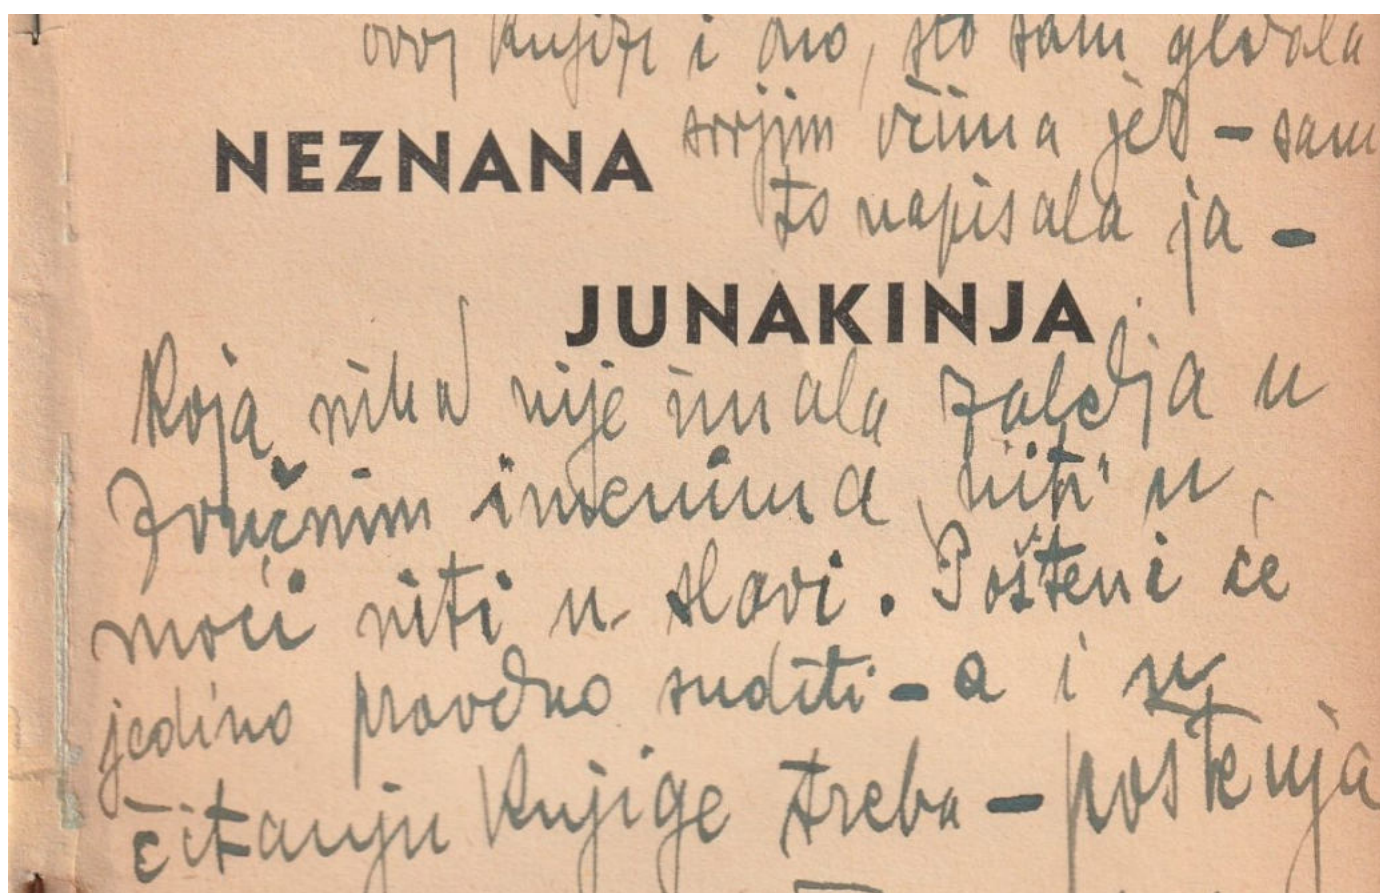 ovoj knjizi i ono, što sam gledala
NEZNANA
svojim očima jer - sam
to napisala ja -
JUNAKINJA
Koja nikad nije imala zaledja u
zvučnim imenima niti u
moći niti u slavi. Pošteni će
jedino pravedno suditi - a i u
čitanju knjige treba - poštenja